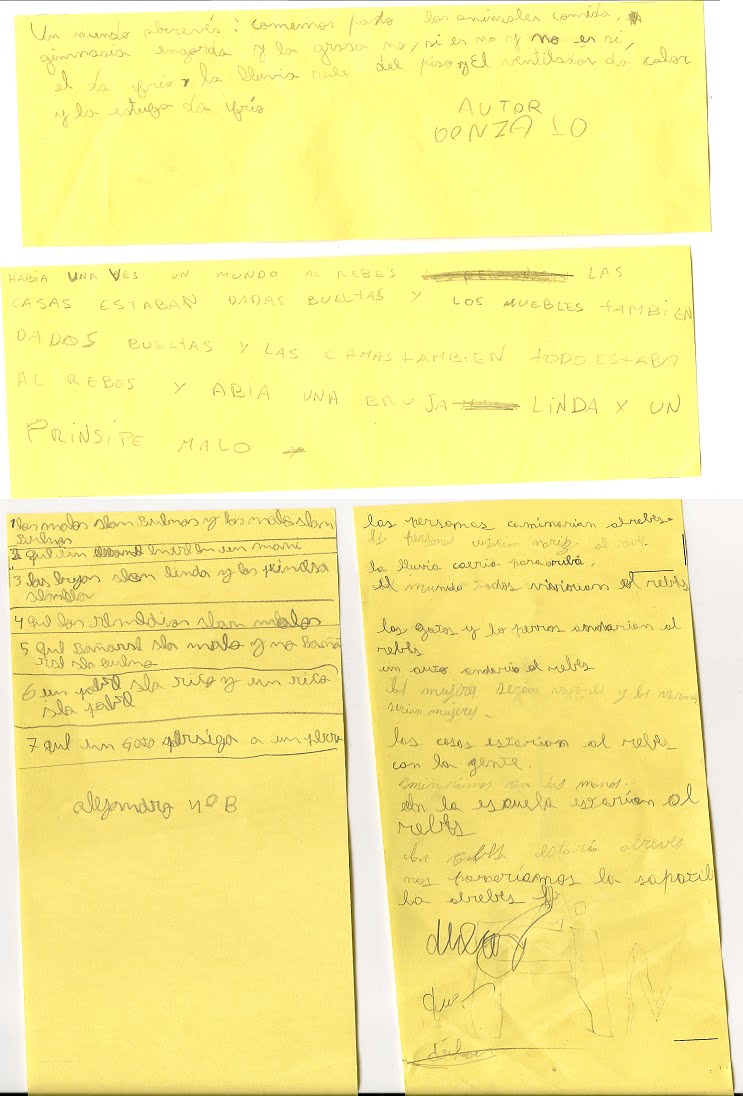 Un mundo abreves: comemos pasto los animales comida,
gimnasia engorda y la grasa no, si es no y no es si,
el da frio y la lluvia sale del piso y El ventilador da calor
y la estufa da frio
AUTOR
GONZALO
HABIA UNA VES UN MUNDO AL REBES LAS
CASAS ESTABAN DADAS BUELTAS Y LOS MUEBLES TAMBIEN
DADOS BUELTAS Y LAS CAMAS TAMBIEN TODO ESTABA
AL REBES Y ABIA UNA BRUJA LINDA Y UN
PRINSIPE MALO
1 los malos sean buenos y los malos sean
buenos
2 que un en un mani
3 las brujas sean linda y la prinsesa
4 que los sean malos
5 que bañarse sea malo y no baña
rse sea bueno
6 un pobre sea rico y un rico
sea pobre
7 que un gato persiga a un perro
alejandro 4º B
las personas caminarian alrebes.
la lluvia caeria para arriba.
el mundo todos vivirian al rebes
los gatos y lo perros andarian al
rebes
un auto andaria al rebes
las mujeres serian varones y los varones
serian mujeres.
las cosas estarian al rebes
con la gente.
caminariamos con las manos
en la escuela estarian al
rebes
estaria abreves
nos pondriamos la sapatil
la alrebes